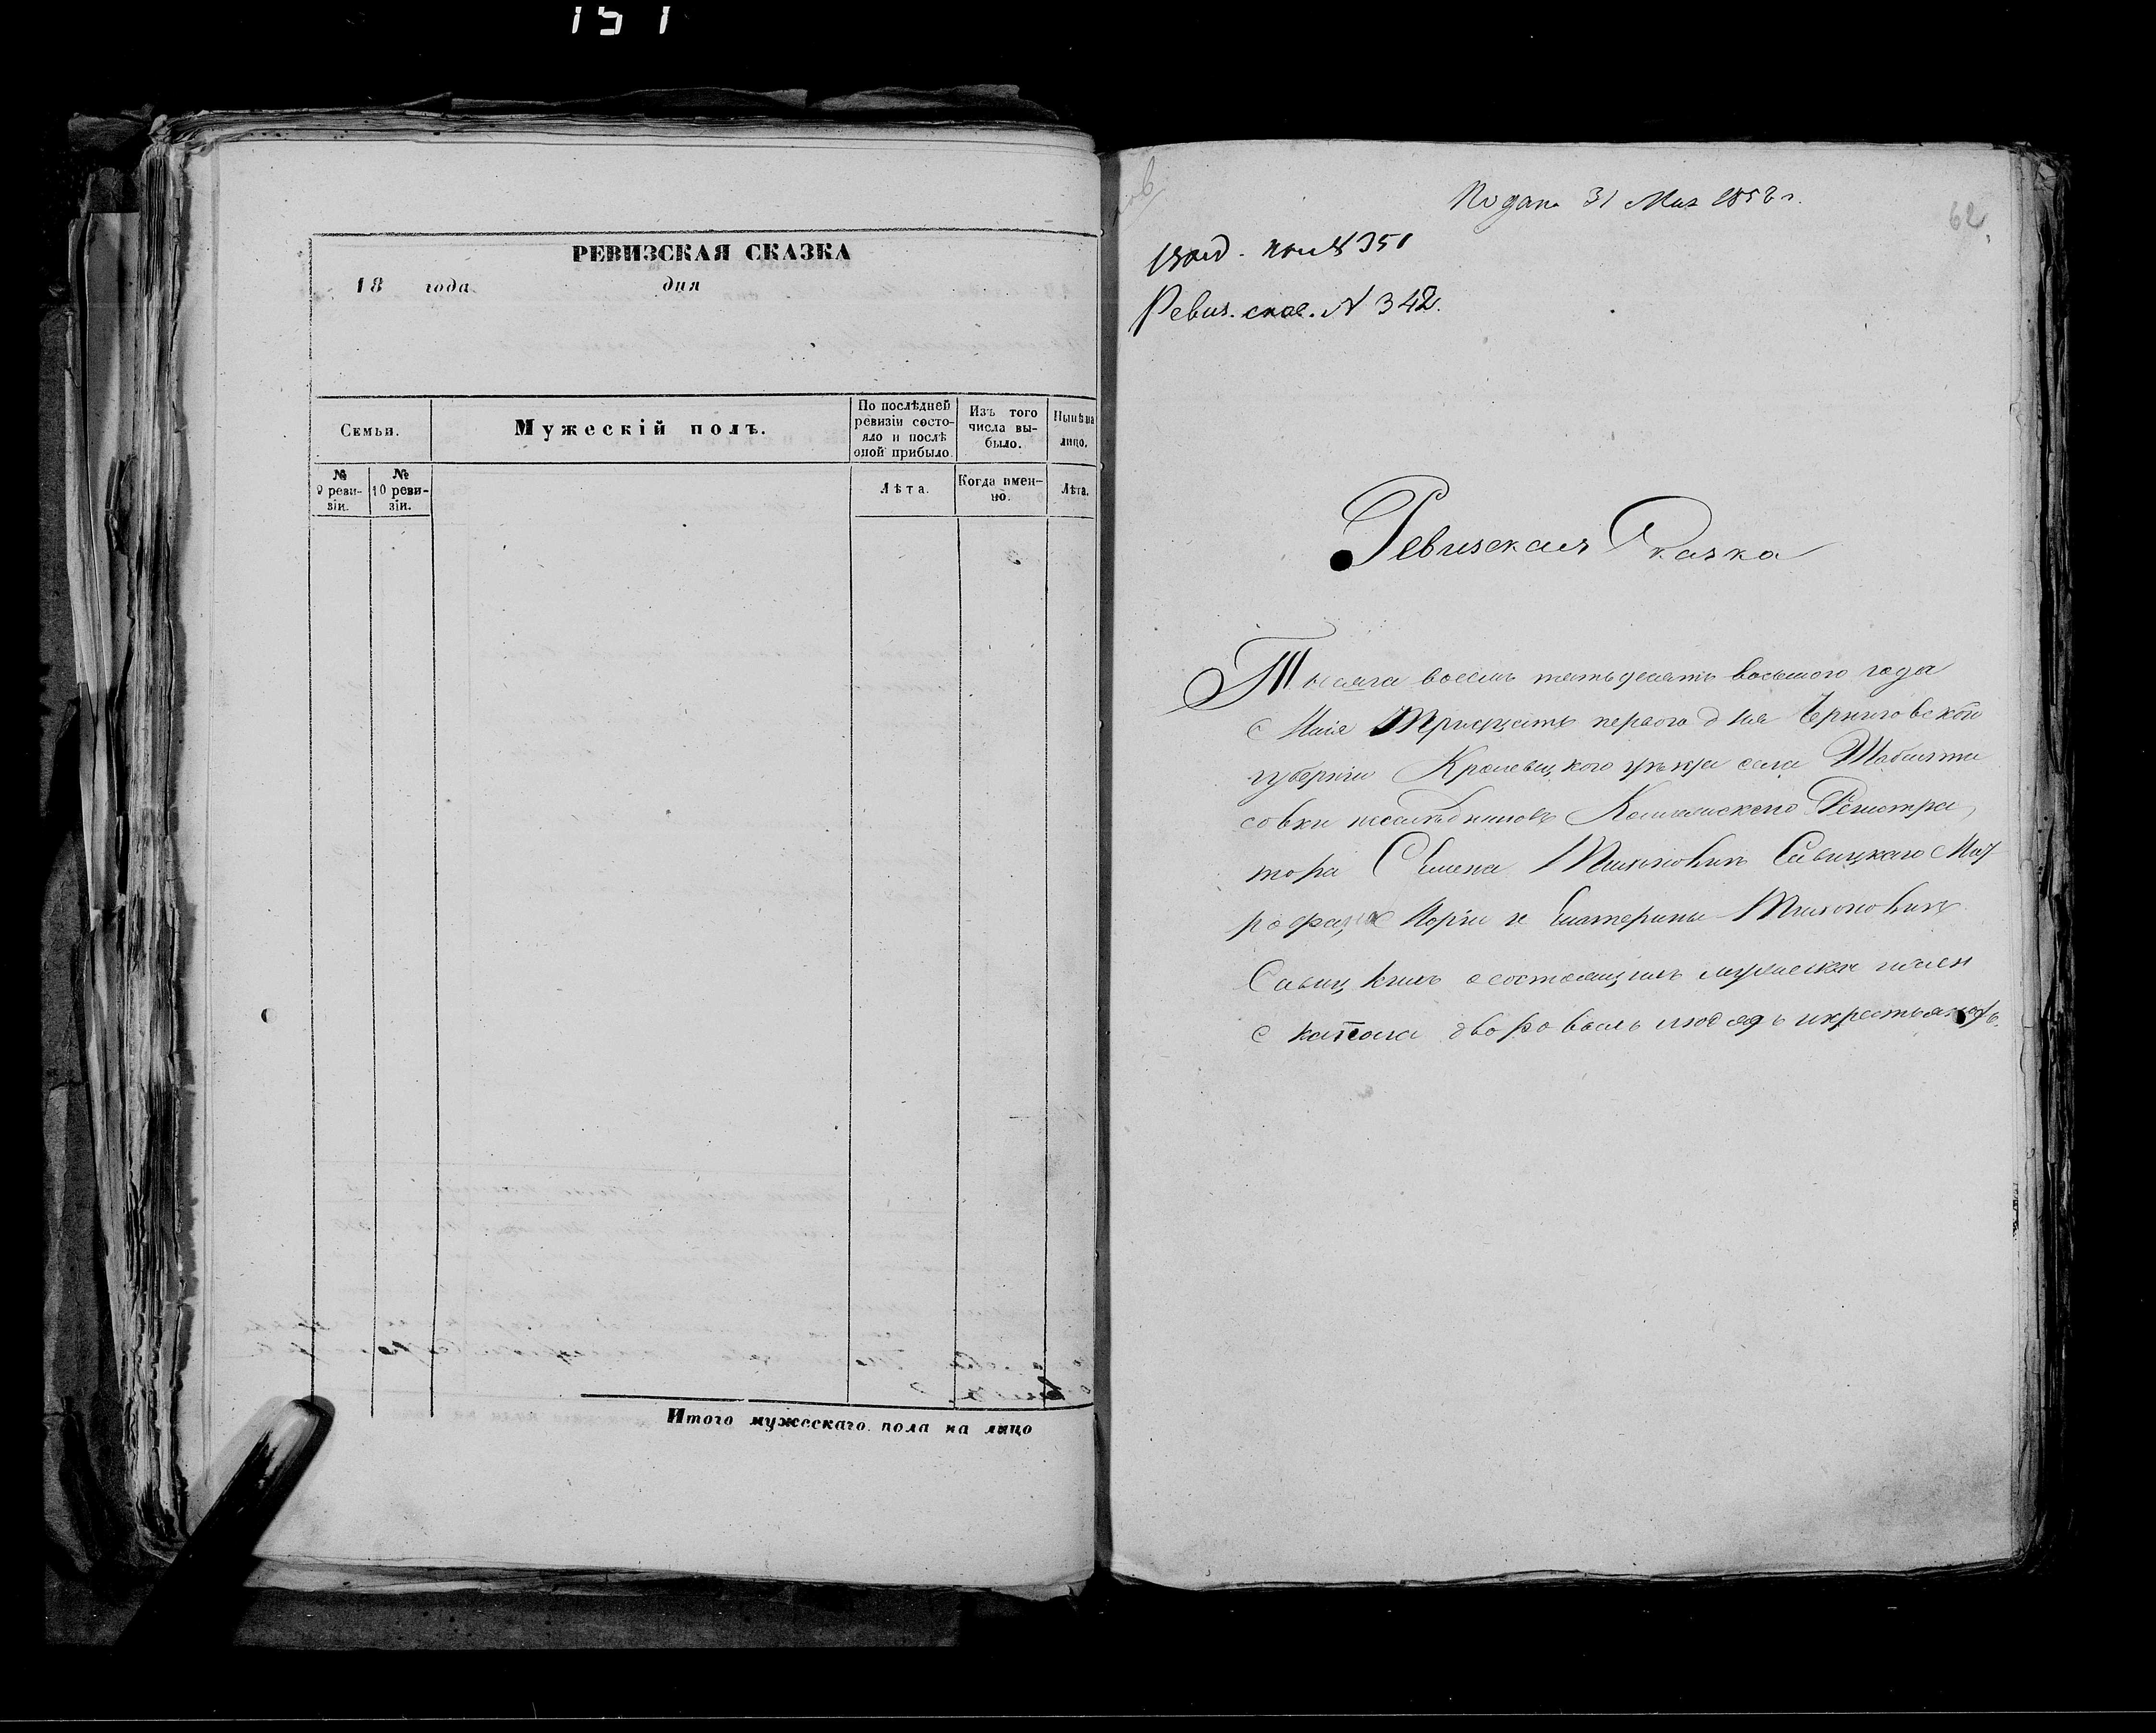 151
РЕВИЗСКАЯ СКАЗКА
18 года дня
Семьи.
Мужескій полъ.
По послѣдней ревизіи состояло и послѣ оной прибыло.
Изъ того числа выбыло.
Нынѣ на лицо.
№ 9 ревизіи.
№ 10 ревизіи.
Лѣта.
Когда именно.
Лѣта.
Итого мужескаго пола на лицо
Подана 31 Мая 1858 г.
62
№ 351
Ревиз. сказ. N 342.
Ревизская Сказка
Тысяча восемь пятьдесятъ восьмого года
Маія Тридцать первого дня Черниговской
губерніи Кролевецкого уѣзда села
совки наслѣдниковъ Регистра
тора Семена Савицкаго
Маріи и Екатерины
Савицкихъ о состоящихъ мужеска
дворовыхъ людяхъ и крестьянахъ.